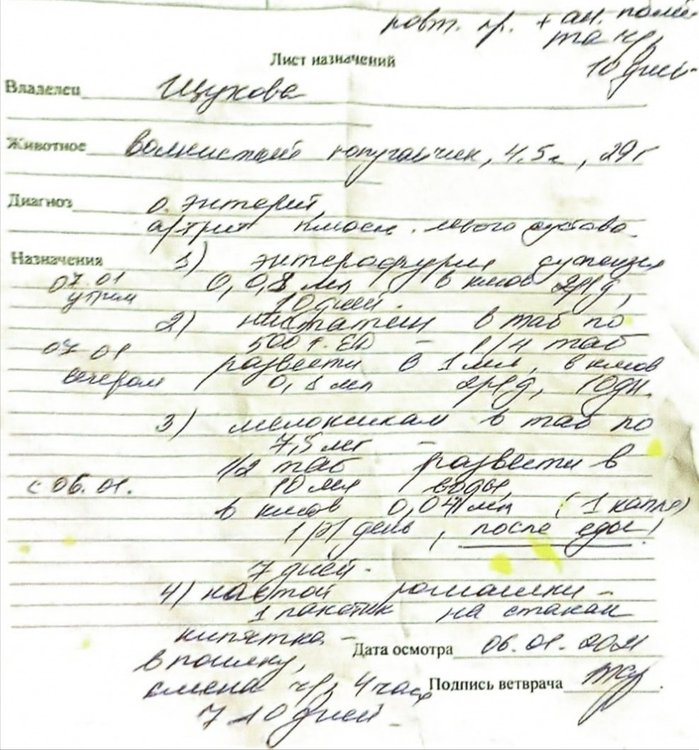 повт. пр. + ан. помё
та чр.
10 дней
Лист назначений
Владелец Щукова
Животное Волнистый попугайчик, 4,5 г, 29 г
Диагноз о. энтерит,
артрит плюсн. левого сустава
Назначения 1) энтерофурил суспензия
07.01 0,08 мл в клюв 2р/д,
утром 10 дней.
2) нистатин в таб по
500 т. ЕД - 1/4 таб
07.01 развести в 1 мл, в клюв
вечером 0,1 мл 2р/д, 10дн.
3) мелоксикам в таб по
7,5 мг -
1/2 таб развести в
с 06.01. 10 мл воды,
в клюв 0,04 мл (1 капля)
1 р/день, после еды!
7 дней.
4) настой ромашки -
1 пакетик на стакан
кипятка - Дата осмотра 06.01.2021
в поилку,
смена чр. 4 часа Подпись ветврача
7-10 дней.